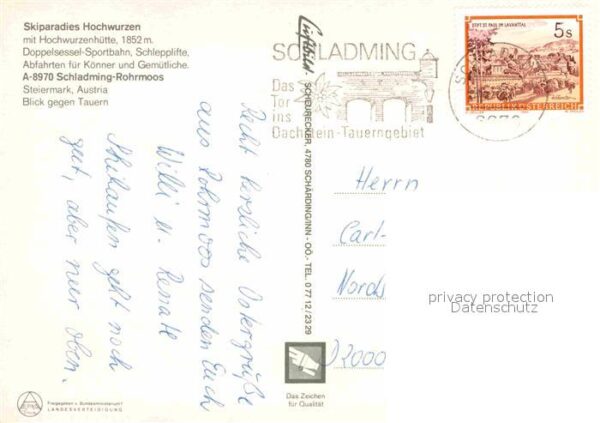 Skiparadies Hochwurzen
mit Hochwurzenhütte, 1852 m.
Doppelsessel-Sportbahn, Schlepplifte,
Abfahrten für Könner und Gemütliche.
A-8970 Schladming-Rohrmoos
Steiermark, Austria
Blick gegen Tauern
Recht herzliche Ostergrüße
aus Rohrmoos senden Euch
Willi u. Renate
Skilaufen geht noch
gut, aber nur oben.
Freigegeben v. Bundesministerium f.
LANDESVERTEIDIGUNG
Luftbild - SCHEURECKER, 4780 SCHÄRDING/INN - OÖ.- TEL. 0 77 12 / 23 29
SCHLADMING
Das
Tor
ins
Dachstein-Tauerngebiet
STIFT ST. PAUL IM LAVANTTAL
5 S
REPUBLIK ÖSTERREICH
8970
Herrn
Carl-
Nords
D 2000
privacy protection
Datenschutz
Das Zeichen
für Qualität